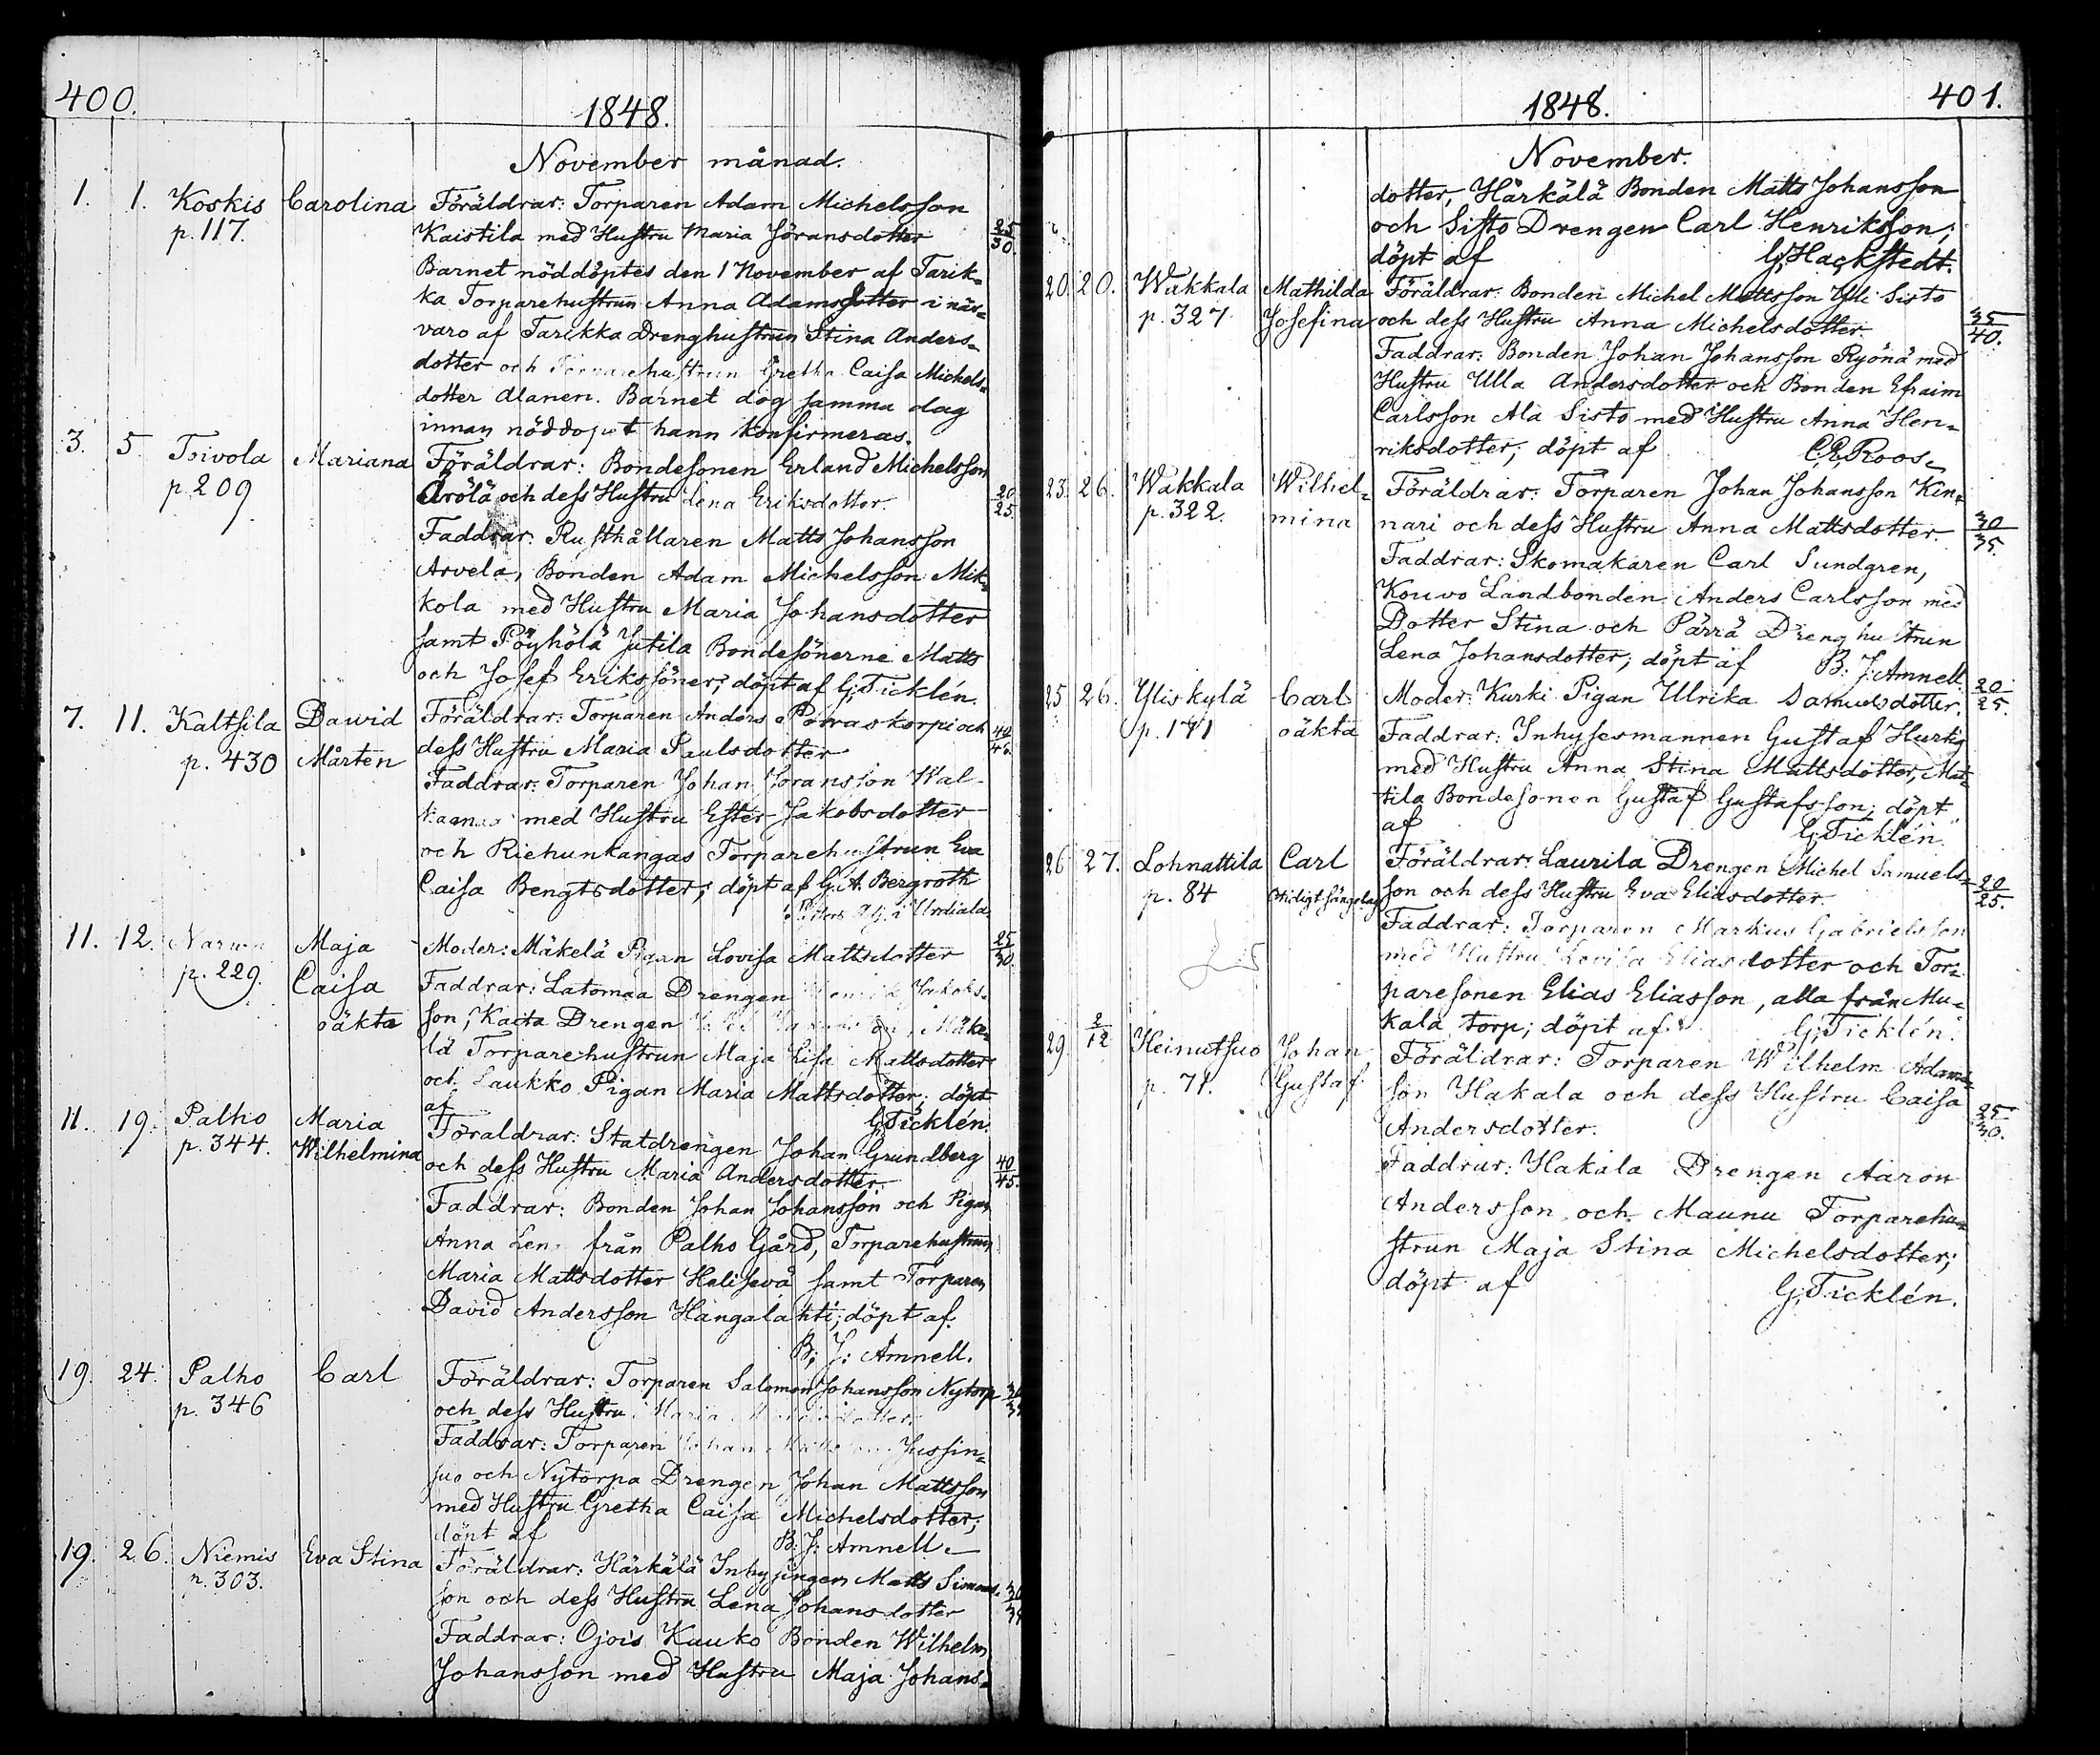 400.
1848.
November månad.
1. 1. Koskis Carolina Föräldrar: Torparen Adam Michelsson
p. 117. Kaistila med Hustru Maria Göransdotter 25/30.
Barnet nöddöptes den 1 November af Tarik-
ka Torparehustrun Anna Adamsdotter i när-
varo af Tarikka Drenghustrun Stina Anders-
dotter och Torparehustrun Gretha Caisa Michels-
dotter Alanen. Barnet dog samma dag
innan nöddopet hann konfirmeras.
3. 5 Toivola Mariana Föräldrar: Bondesonen Erland Michelsson
p. 209 Arölä och dess Hustru Lena Eriksdotter. 20/25.
Faddrar: Rusthållaren Matts Johansson
Arvela, Bonden Adam Michelsson Mik-
kola med Hustru Maria Johansdotter
samt Pöyhölä Jutila Bondesönerne Matts
och Josef Erikssöner; döpt af G; Ticklén.
7. 11. Kaltsila Dawid Föräldrar: Torparen Anders Porraskorpi och
p. 430 Mårten dess Hustru Maria Paulsdotter
Faddrar: Torparen Johan Göransson Wal-
med Hustru Ester Jakobsdotter
och Riehunkangas Torparehustrun Eva
Caisa Bengtsdotter; döpt af G. A. Bergroth
Adj. i Urdiala
11. 12. Maja Moder: Mäkelä Pigan Lovisa Mattsdotter 25/30.
p. 229. Caisa Faddrar: Latomaa Drengen Jakobs-
oäkta son, Kaita Drengen Mäke-
lä Torparehustrun Maja Lisa Mattsdotter
och Laukko Pigan Maria Mattsdotter; döpt
af G; Ticklén.
11. 19. Palho Maria Föraldrar: Statdrengen Johan Grundberg
p. 344. Wilhelmina och dess Hustru Maria Andersdotter. 40/45.
Faddrar: Bonden Johan Johansson och Pigan
Anna Lena från Palho Gård, Torparehustrun
Maria Mattsdotter Helisevä samt Torparen
David Andersson Hangalahti; döpt af
B; J: Amnell.
19. 24. Palho Carl Föräldrar: Torparen Salomon Johansson Nytorp
p. 346 och dess Hustru Maria
Faddrar: Torparen Johan Jussin-
suo och Nytorpa Drengen Johan Mattsson
med Hustru Gretha Caisa Michelsdotter;
döpt af B: J: Amnell.
19. 26. Niemis Eva Stina Föräldrar: Härkälä Inhysingen Matts Simons-
p. 303. son och dess Hustru Lena Johansdotter
Faddrar: Ojois Kauko Bonden Wilhelm
Johansson med Hustru Maja Johans-
401.
1848.
November.
dotter, Härkälä Bonden Matts Johansson
och Sisto Drengen Carl Henriksson;
döpt af G; Hackstedt.
20. 20. Wakkala Mathilda Föräldrar: Bonden Michel Mattsson Yli Sisto
p. 327 Josefina och dess Hustru Anna Michelsdotter 35/40.
Faddrar: Bonden Johan Johansson Ryönä med
Hustru Ulla Andersdotter och Bonden Efraim
Carlsson Ala Sisto med Hustru Anna Hen-
riksdotter; döpt af C; E; Roos.
23. 26. Wakkala Wilhel- Föräldrar: Torparen Johan Johansson Kin-
p. 322. mina nari och dess Hustru Anna Mattsdotter. 30/35.
Faddrar: Skomakaren Carl Sundgren,
Kouvo Landbonden Anders Carlsson med
Dotter Stina och Pärrä Drenghustrun
Lena Johansdotter; döpt af B: J: Amnell
25 26. Yliskylä Carl Moder: Kurki Pigan Ulrika Samuelsdotter. 20/25.
p. 171 oäkta Faddrar: Inhysesmannen Gustaf Hurtig
med Hustru Anna Stina Mattsdotter, Mat-
tila Bondesonen Gustaf Gustafsson; döpt
af G; Ticklén.
26 27. Lohnattila Carl Föräldrar: Laurila Drengen Michel Samuels-
p. 84 son och dess Hustru Eva Eliasdotter. 20/25.
Faddrar: Torparen Markus Gabrielsson
med Hustru Lovisa Eliasdotter och Tor-
paresonen Elias Eliasson, alla från Mu-
kala torp; döpt af G; Ticklén.
29. 2/12 Heinutsuo Johan Föräldrar: Torparen Wilhelm Adams-
p. 71. Gustaf son Hakala och dess Hustru Caisa
Andersdotter. 25/30.
Faddrar: Hakala Drengen Aaron
Andersson och Maunu Torparehu-
strun Maja Stina Michelsdotter;
döpt af G; Ticklén.